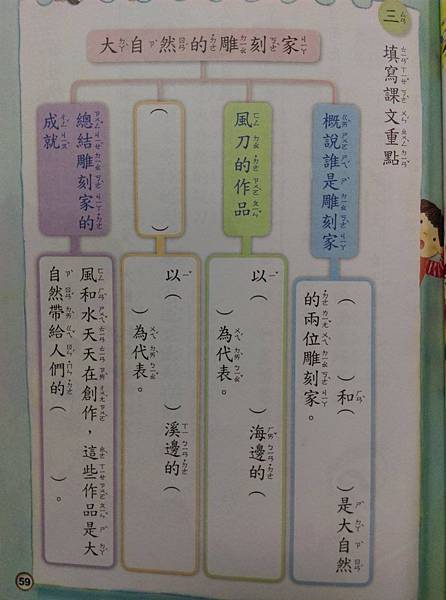 三
填寫課文重點
大自然的雕刻家
概說誰是雕刻家
(　　)和(　　)是大自然
的兩位雕刻家。
風刀的作品
以(　　)海邊的(
　　)為代表。
(　　)
以(　　)溪邊的(
　　)為代表。
總結雕刻家的
成就
風和水天天在創作，這些作品是大
自然帶給人們的(　　)。
59